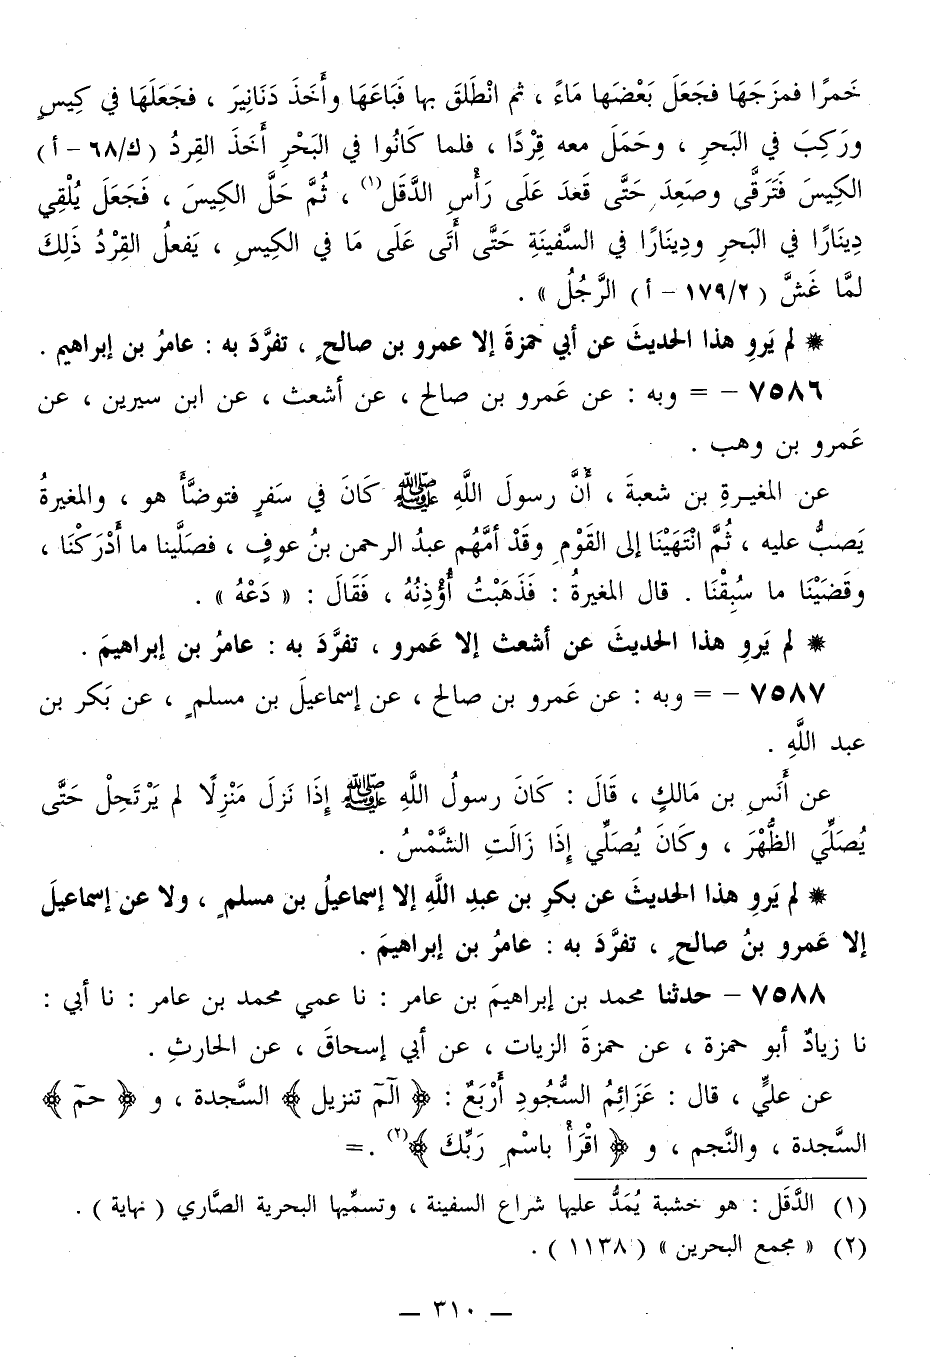 خَمرًا فمزَجَهَا فجَعَلَ بَعْضَهَا مَاءً ، ثم انْطَلقَ بها فَبَاعَهَا وأَخَذَ دَنَانِيرَ ، فجَعَلَهَا في كِيسٍ
ورَكِبَ في البَحرِ ، وحَمَلَ معه قِرْدًا ، فلما كَانُوا في البَحْرِ أَخَذَ القِردُ (ك/٦٨ - أ)
الكِيسَ فَتَرَقَّى وصَعِدَ حَتَّى قَعدَ عَلَى رَأْسِ الدَّقَل(١) ، ثُمَّ حَلَّ الكِيسَ ، فَجَعَلَ يُلْقِي
دِينَارًا في البَحرِ ودِينَارًا في السَّفِينَةِ حَتَّى أَتَى عَلَى مَا في الكِيسِ ، يَفعلُ القِرْدُ ذَلِكَ
لمَّا غَشَّ (١٧٩/٢ - أ) الرَّجُلُ » .
* لم يَروِ هذا الحديثَ عن أبي حمزةَ إلا عمرو بن صالحٍ ، تفرَّدَ به : عامرُ بن إبراهيم .
٧٥٨٦ - = وبه : عن عَمرو بن صالح ، عن أشعث ، عن ابن سيرين ، عن
عَمرو بن وهب .
عن المغيرةِ بن شعبةَ ، أَنَّ رسولَ اللَّهِ ﷺ كَانَ في سَفرٍ فتوضَّأَ هو ، والمغيرةُ
يَصبُّ عليه ، ثُمَّ انْتَهَيْنَا إلى القَوْمِ وقَدْ أمَّهُم عبدُ الرحمن بنُ عوفٍ ، فصَلَّينا ما أَدْرَكْنَا ،
وقَضَيْنَا ما سُبِقْنَا . قال المغيرةُ : فَذَهَبْتُ أُؤْذِنُهُ ، فَقَالَ : « دَعْهُ » .
* لم يَروِ هذا الحديثَ عن أشعث إلا عَمرو ، تفرَّدَ به : عامرُ بن إبراهيمَ .
٧٥٨٧ - = وبه : عن عَمرو بن صالح ، عن إسماعيلَ بن مسلمٍ ، عن بَكر بن
عبد اللَّهِ .
عن أَنَسِ بن مَالكٍ ، قَالَ : كَانَ رسولُ اللَّهِ ﷺ إِذَا نَزلَ مَنْزِلًا لم يَرْتَحِلْ حَتَّى
يُصَلِّيَ الظُّهْرَ ، وكَانَ يُصَلِّي إِذَا زَالَتِ الشَّمْسُ .
* لم يَروِ هذا الحديثَ عن بكرِ بن عبدِ اللَّهِ إلا إسماعيلُ بن مسلمٍ ، ولا عن إسماعيلَ
إلا عَمرو بنُ صالحٍ ، تفرَّدَ به : عامرُ بن إبراهيمَ .
٧٥٨٨ - حدثنا محمد بن إبراهيمَ بن عامر : نا عمي محمد بن عامر : نا أبي :
نا زيادٌ أبو حمزة ، عن حمزةَ الزيات ، عن أبي إسحاقَ ، عن الحارثِ .
عن عليٍّ ، قال : عَزَائِمُ السُّجُودِ أَرْبَعٌ : ﴿ الٓمٓ تنزيل ﴾ السَّجدة ، و ﴿ حمٓ ﴾
السَّجدة ، والنَّجم ، و ﴿ اقْرَأْ باسْمِ رَبِّكَ ﴾(٢) .=
(١) الدَّقَل : هو خشبة يُمَدُّ عليها شراع السفينة ، وتسمِّيها البحرية الصَّاري ( نهاية ) .
(٢) « مجمع البحرين » ( ١١٣٨ ) .
— ٣١٠ —